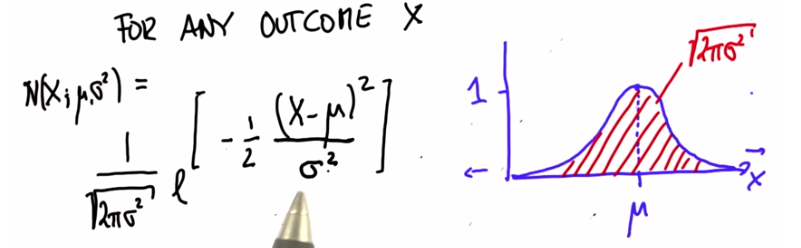 FOR ANY OUTCOME X
N(X; μ, σ²) =
1 / √2πσ² e [ - 1/2 (X-μ)² / σ² ]
√2πσ²
1
x
μ